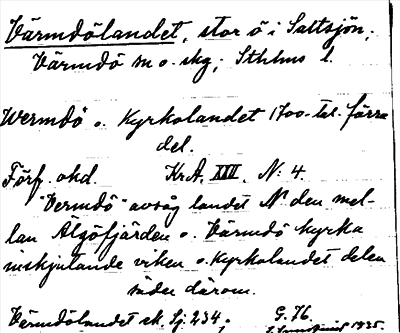 Värmdölandet, stor ö i Saltsjön;
Värmdö sn o. skg; Sthlms l.
Wermdö o. Kyrkolandet 1700-tal. förra
del.
Förf. okd. Kr.A. XIII. N. 4.
"Vermdö" avsåg landet N den mel-
lan Älgöfjärden o. Värmdö kyrka
inskjutande viken o. Kyrkolandet delen
söder därom.
Värmdölandet sk. Sj. 234. G. 76.
1935.